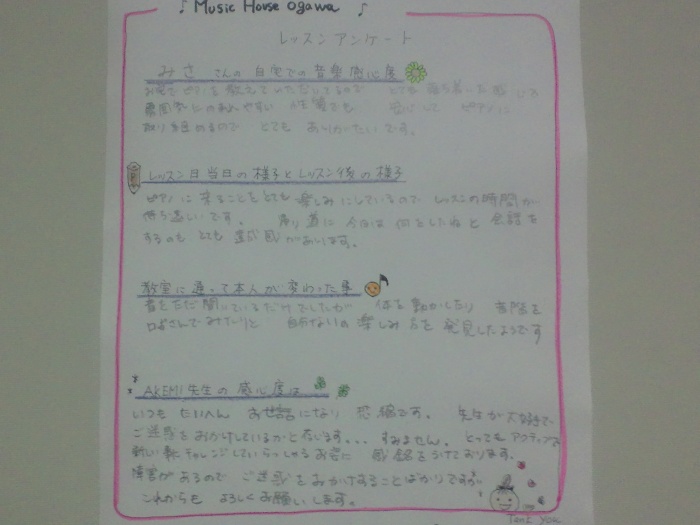 ♪ Music House Ogawa ♪
レッスンアンケート
みさ さんの 自宅での音楽感心度
お家で を教えていただいてるので とても 落ち着いた感じで
周囲 やすい 性質でも 安心して ピアノに
取り組めるので とても ありがたいです。
レッスン日当日の様子とレッスン後の様子
ピアノに来ることをとても楽しみにしているので レッスンの時間が
待ち遠いです。 帰り道に 今日は 何をしたねと 会話を
するのも とても 達成感があります。
教室に通って本人が変わった事
音をただ聞いているだけでしたが 体を動かしたり 音階を
口ずさんでみたりと 自分なりの楽しみ方を発見したようです
AKEMI先生の感心度は
いつも たいへん お世話になり 恐縮です。 先生が大好きで
ご迷惑をおかけしているかと存じます... すみません。とってもアクティブで
新しい事にチャレンジしていらっしゃるお姿に 感銘をうけております。
障害があるので ご迷惑をおかけすることばかりですが
これからも よろしくお願いします。
Tank you